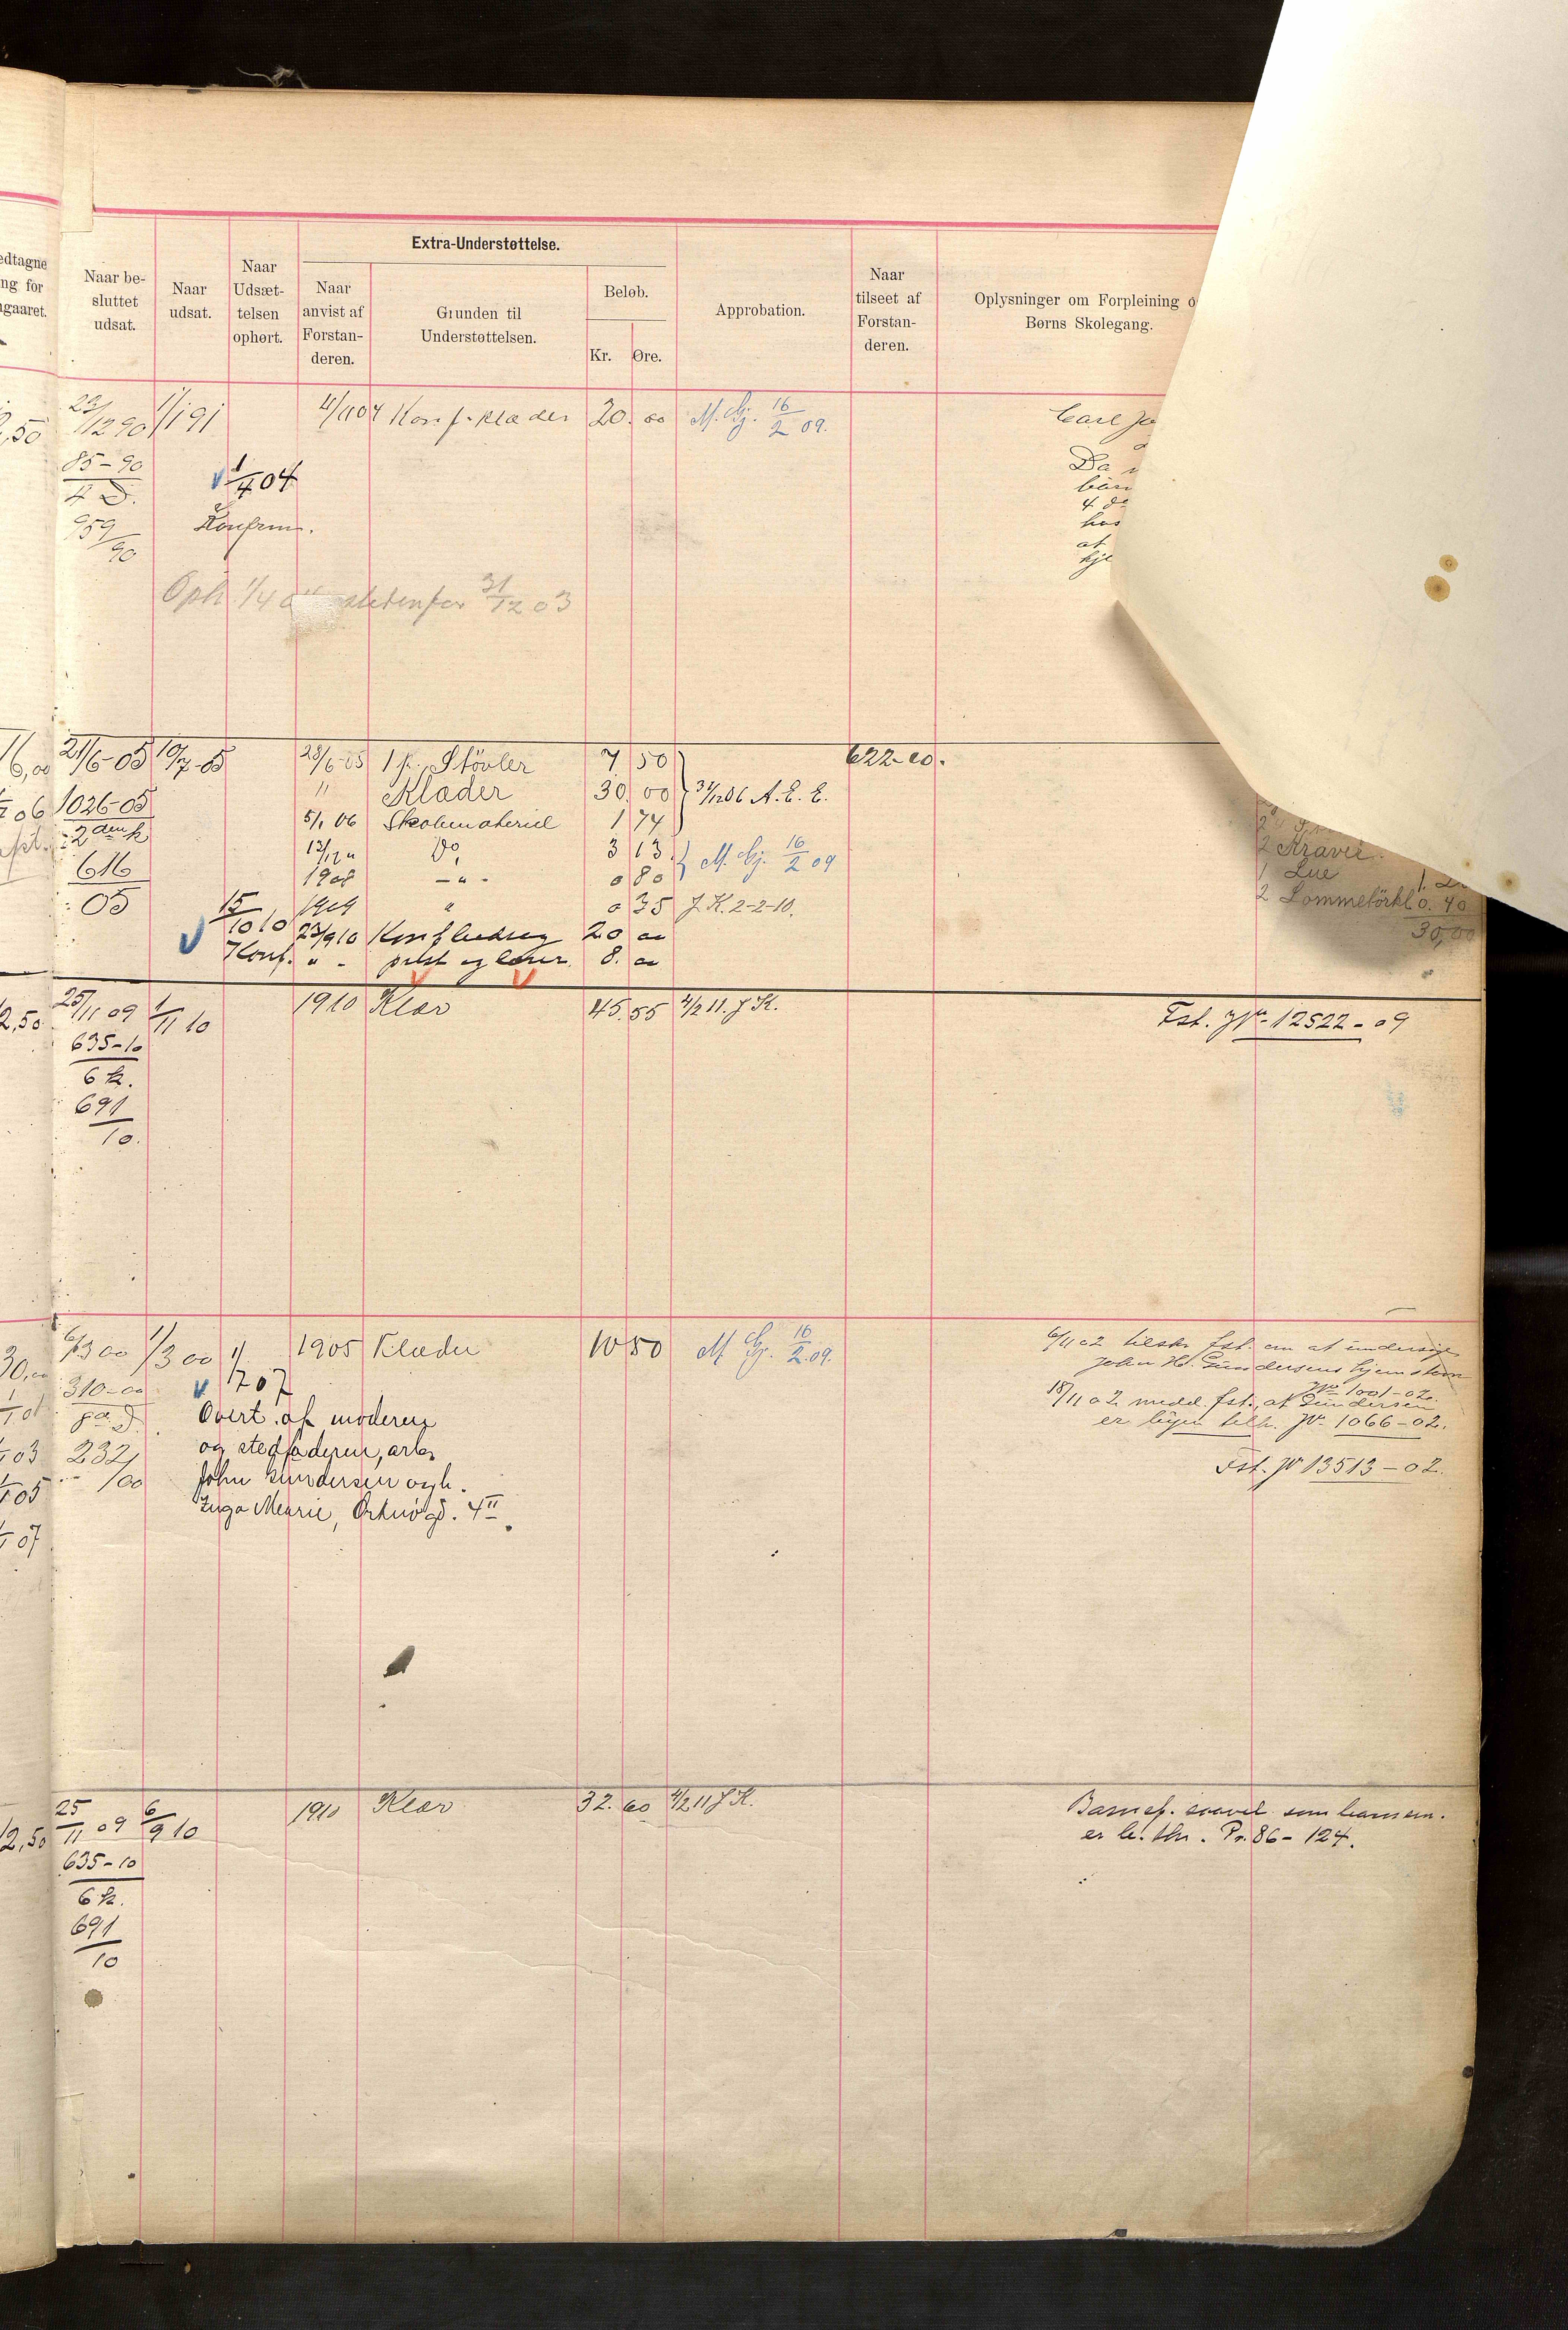 edtagne
ng for
gaaret.
Naar be-
sluttet
udsat.
Naar
udsat.
Naar
Udsæt-
telsen
ophørt.
Extra-Understøttelse.
Naar
anvist af
Forstan-
deren.
Grunden til
Understøttelsen.
Beløb.
Kr. Øre.
Approbation.
Naar
tilseet af
Forstan-
deren.
Oplysninger om Forpleining o
Børns Skolegang.
2,50 23/12 90 1/1 91 4/1104 Konf.klæder 20. 00 M. Gj. 16/2 09. Carl Jo
85-90
4 D.
959/90
1/4 04
Konfirm.
Da
4 de
hos
at
hje
Oph 1/4 04 istedenfor 31/12 03
16,00 21/6-05 10/7-05 28/6-05 1 p. Støvler 7 50 622-10.
06 1026-05 " Klæder 30. 00 31/12 06 A. E. E.
2den k 5/1 06 Skolemateriel 1 74
616 13/12 " Do. 3 13. M. Gj. 16/2 09
05 1908 - " - 0 80
15/10 10 1909 " 0 35 J. K. 2-2-10.
23/9 10 Konfbidrag 20 00
Konf. " - prest og lærer. 8. 00
2 Kraver.
1 Lue
2 Lommetörkl 0. 40
30,00
2,50 25/11 09 1/11 10 1910 Klær 45.55 4/2 11. J K. Fst. No 12522-09
635-10
6 k.
691
10.
30,00 6/3 00 1/3 00 1/1 1905 Klæder 10 50 M Gj. 16/2.09.
310-00 1 7 07
Overt. af moderen
og stedfaderen, arb.
John Gundersen og h.
Inga Marie, Orknøgd. 4 II.
232/00
03
05
07
6/11 02 tilskr. fst. om at undersøge
John H. Gundersens hjem
No 1001-02.
18/11 02 medd. fst., at Gundersen
er No 1066-02.
Fst. No 13513-02.
2,50 25/11 09 6/9 10 1910 Klær 32. 60 4/2 11 J K.
635-10
6 k.
691
10
Barnef. saavel som
er Pr. 86-124.